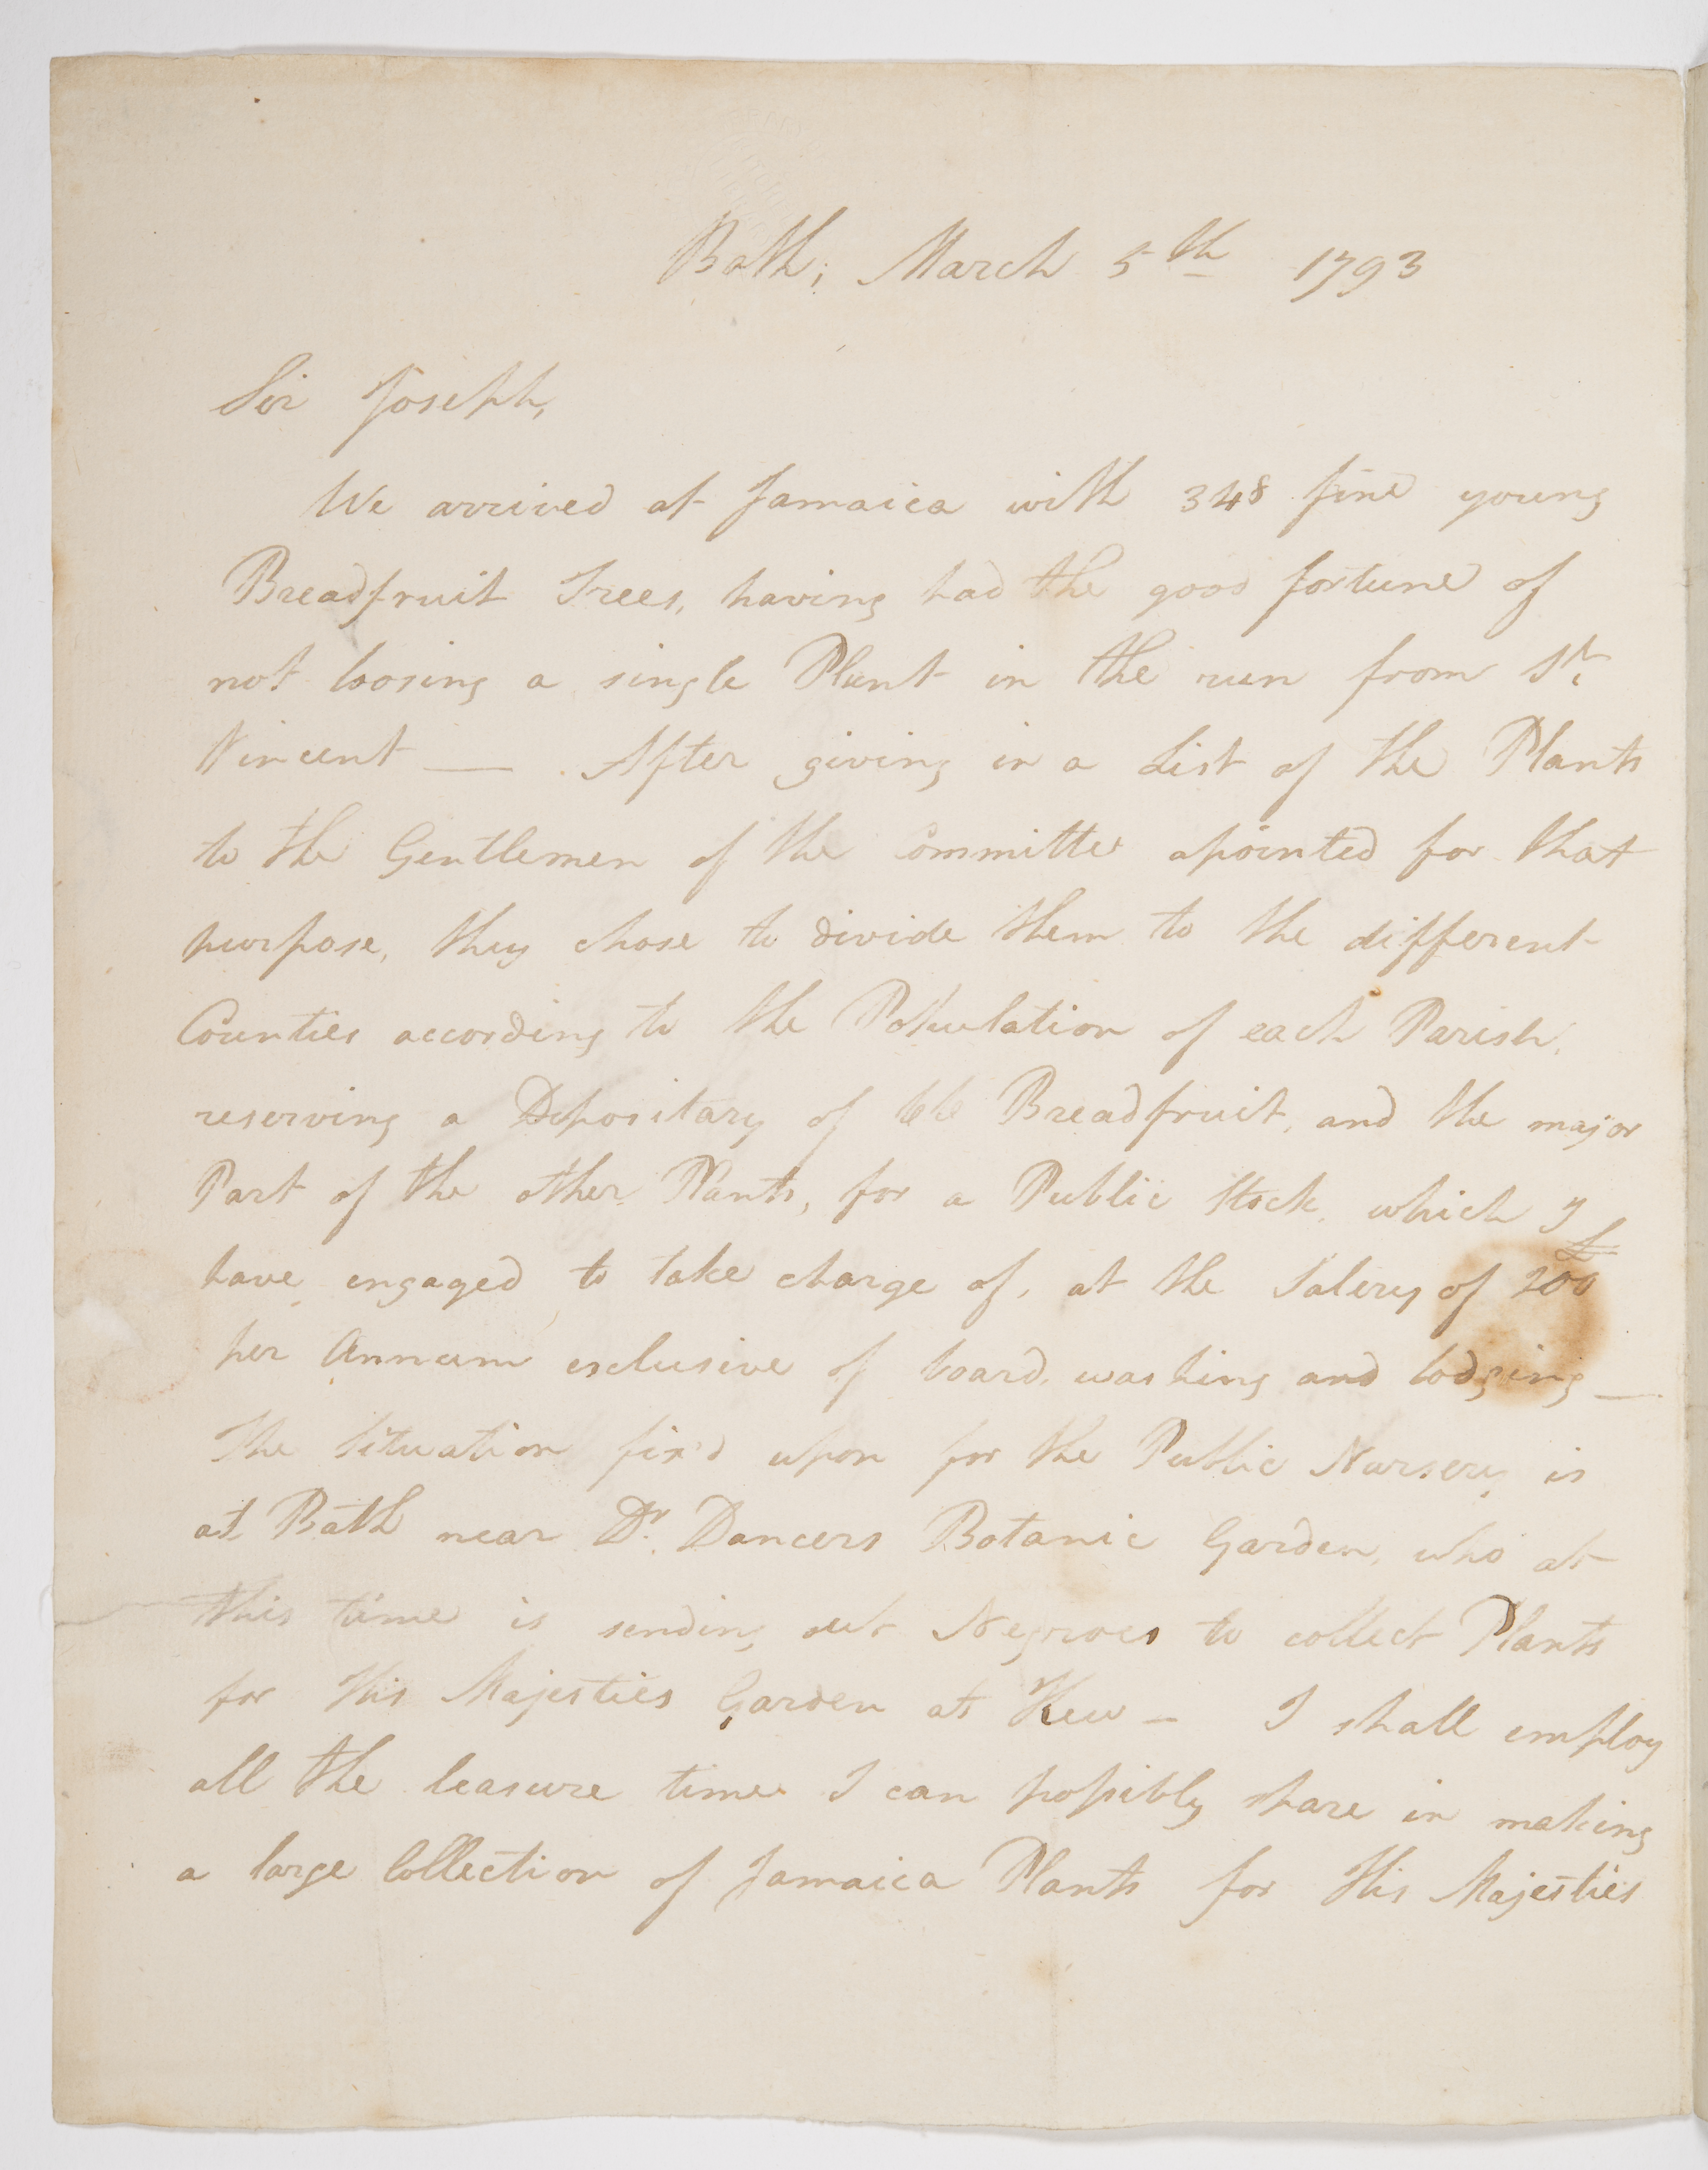 Bath; March 5th 1793
Sir Joseph,
We arrived at Jamaica with 348 fine young
Breadfruit Trees, having had the good fortune of
not loosing a single Plant in the run from St.
Vincent — After giving in a List of the Plants
to the Gentlemen of the Committee apointed for that
purpose, they chose to divide them to the different
Counties according to the Population of each Parish,
reserving a Depositary of 66 Breadfruit, and the major
Part of the other Plants, for a Public Stock, which I
have engaged to take charge of, at the Salery of £200
per Annum exclusive of board, washing and lodging —
The Situation fix'd upon for the Public Nursery is
at Bath near Dr. Dancers Botanic Garden, who at
this time is sending out Negroes to collect Plants
for His Majesties Garden at Kew — I shall employ
all the leasure time I can possibly spare in making
a large Collection of Jamaica Plants for His Majesties